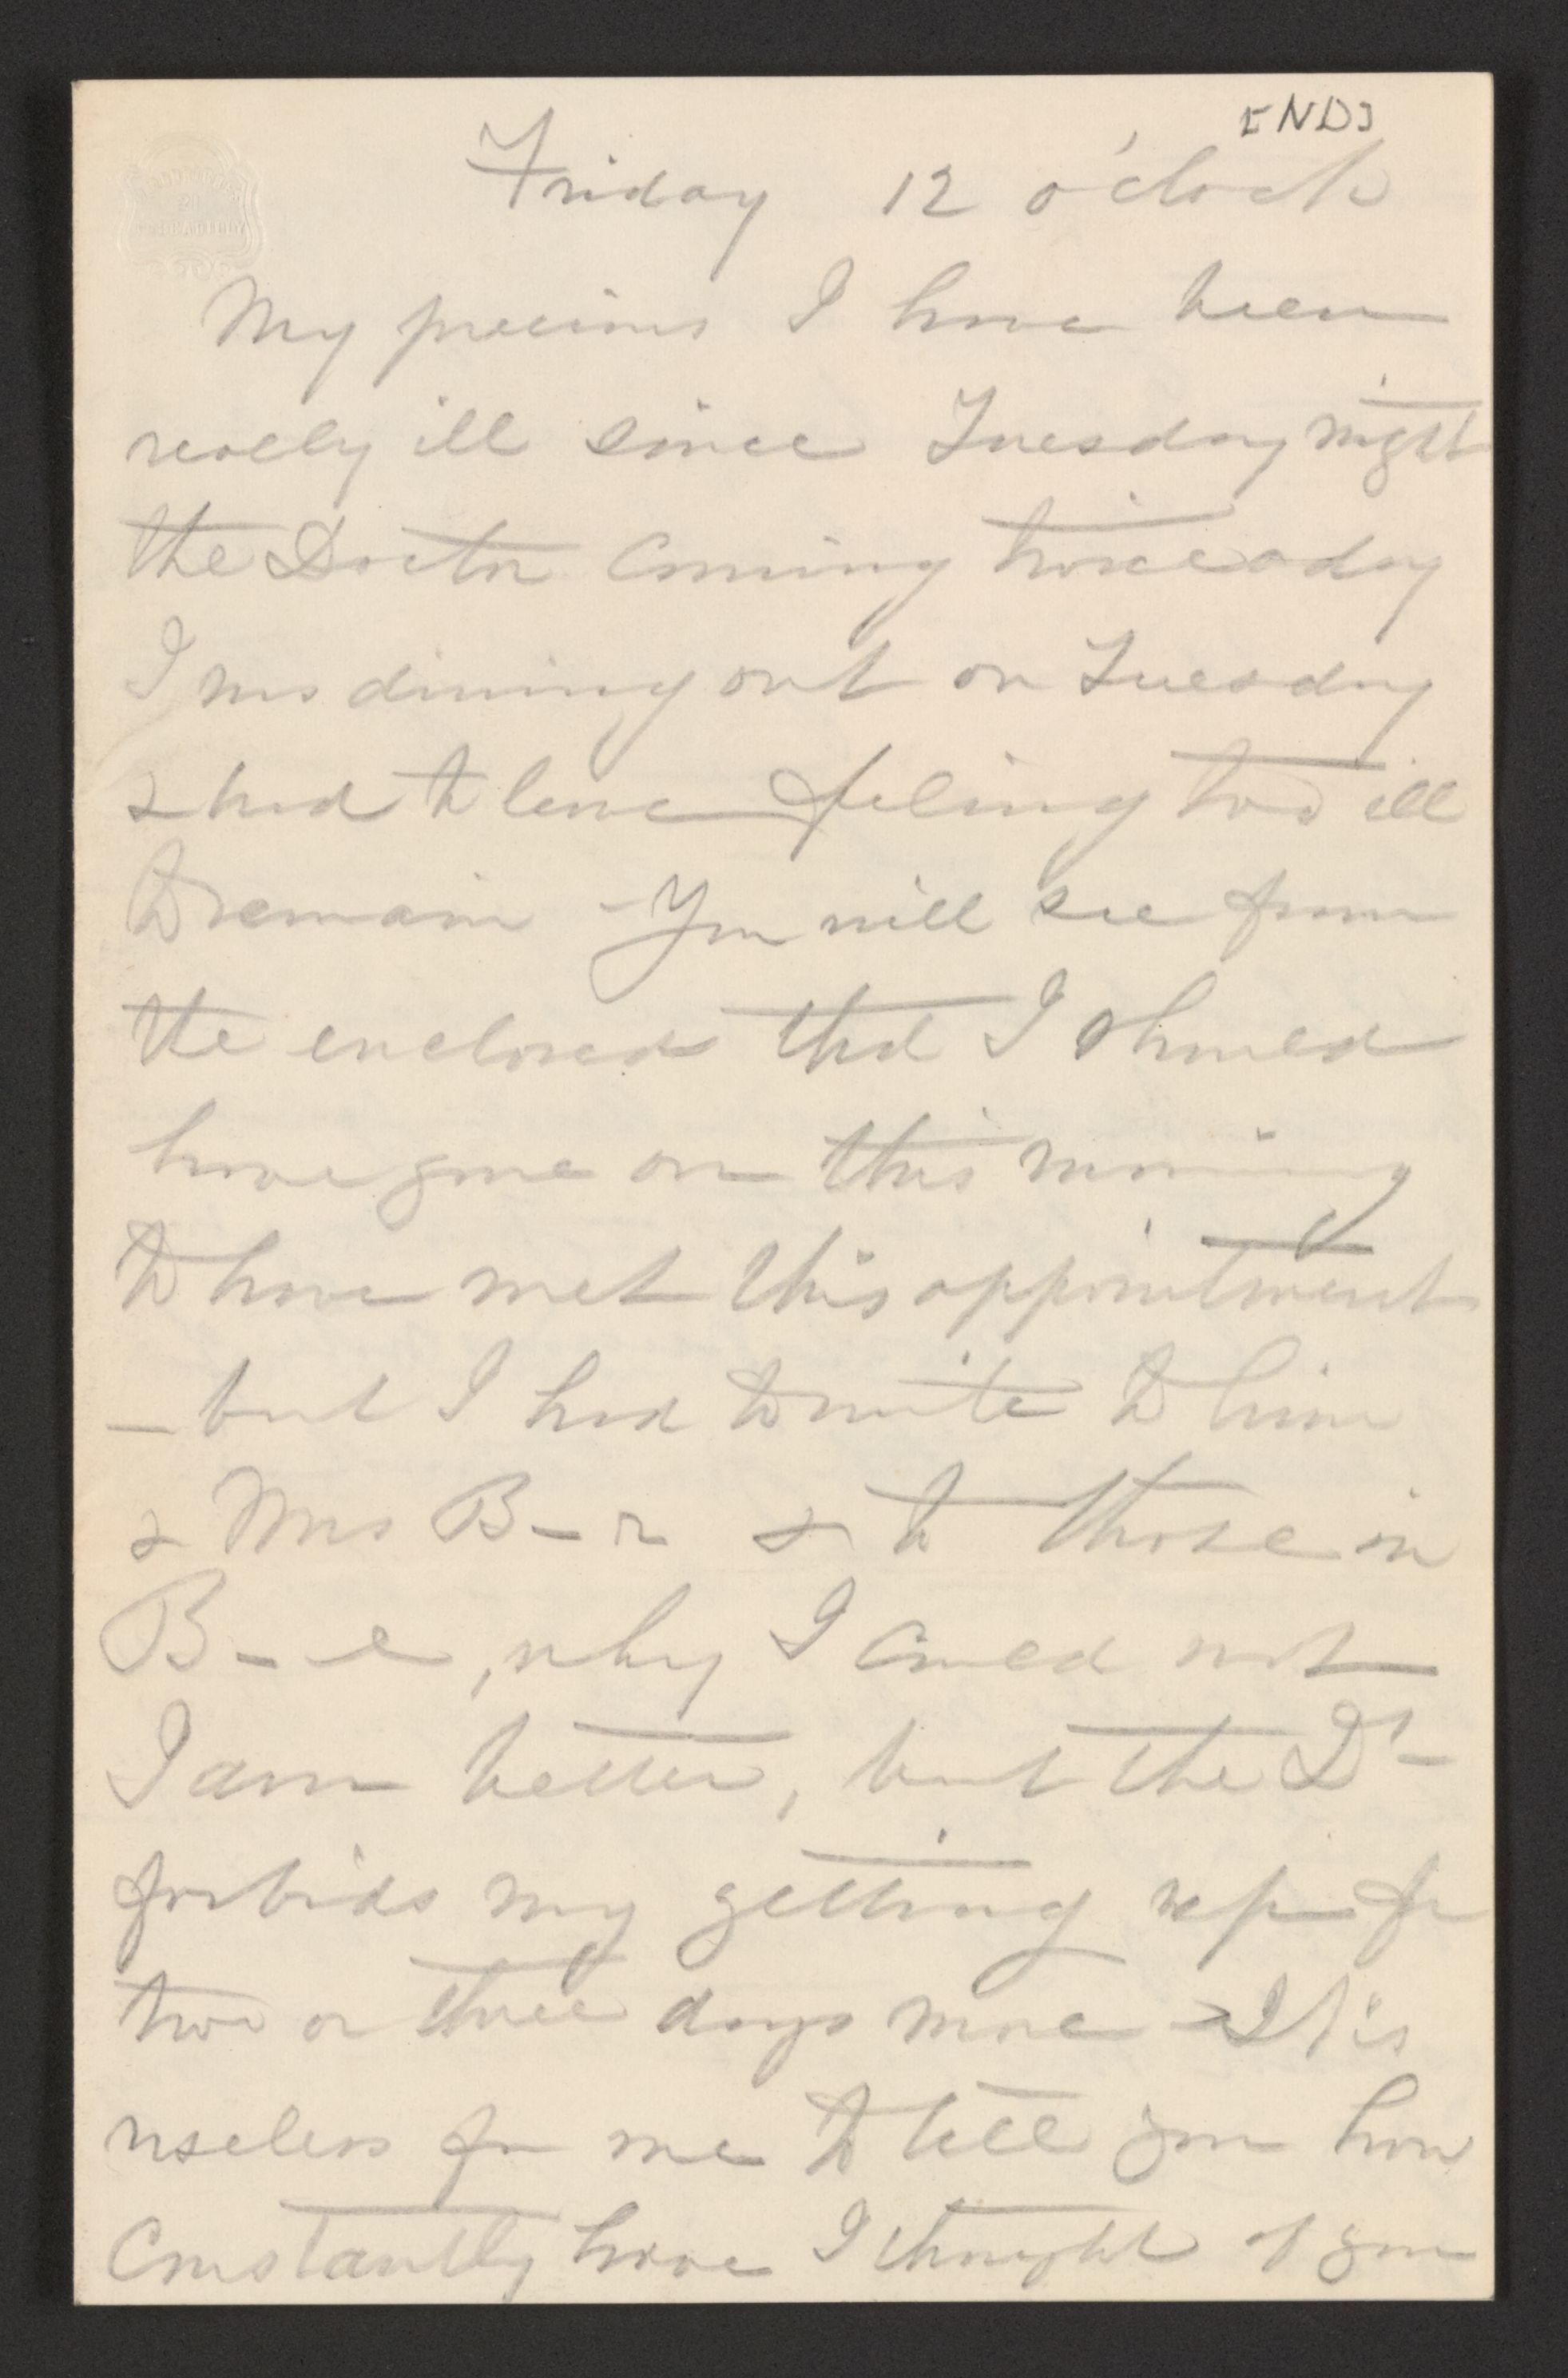 [ND]
Friday 12 o'clock
My precious I have been
really ill since Tuesday night
the Doctor Coming twice a day
I was dining out on Tuesday
& had to leave feeling too ill
to remain - You will see from
the enclosed that I should
have gone on this morning
to have met this appointment
- but I had to write to him
& Mrs B-r & to those in
B-e, why I could not
I am better, but the Dr
forbids my getting up for
two or three days more - It is
useless for me to tell you how
Constantly have I thought of you